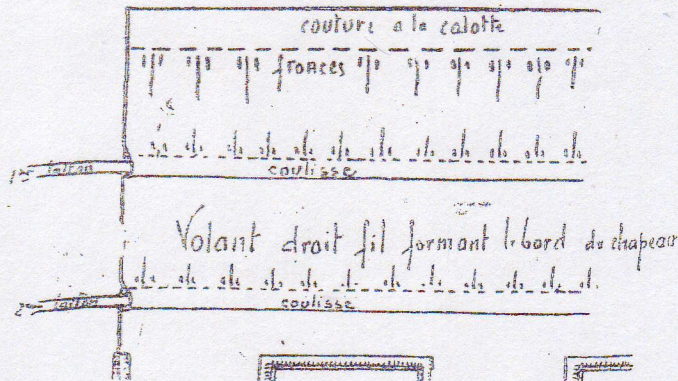 couture a la calotte
fronces
1er laiton
coulisse
Volant droit fil formant le bord du chapeau
2e laiton
coulisse